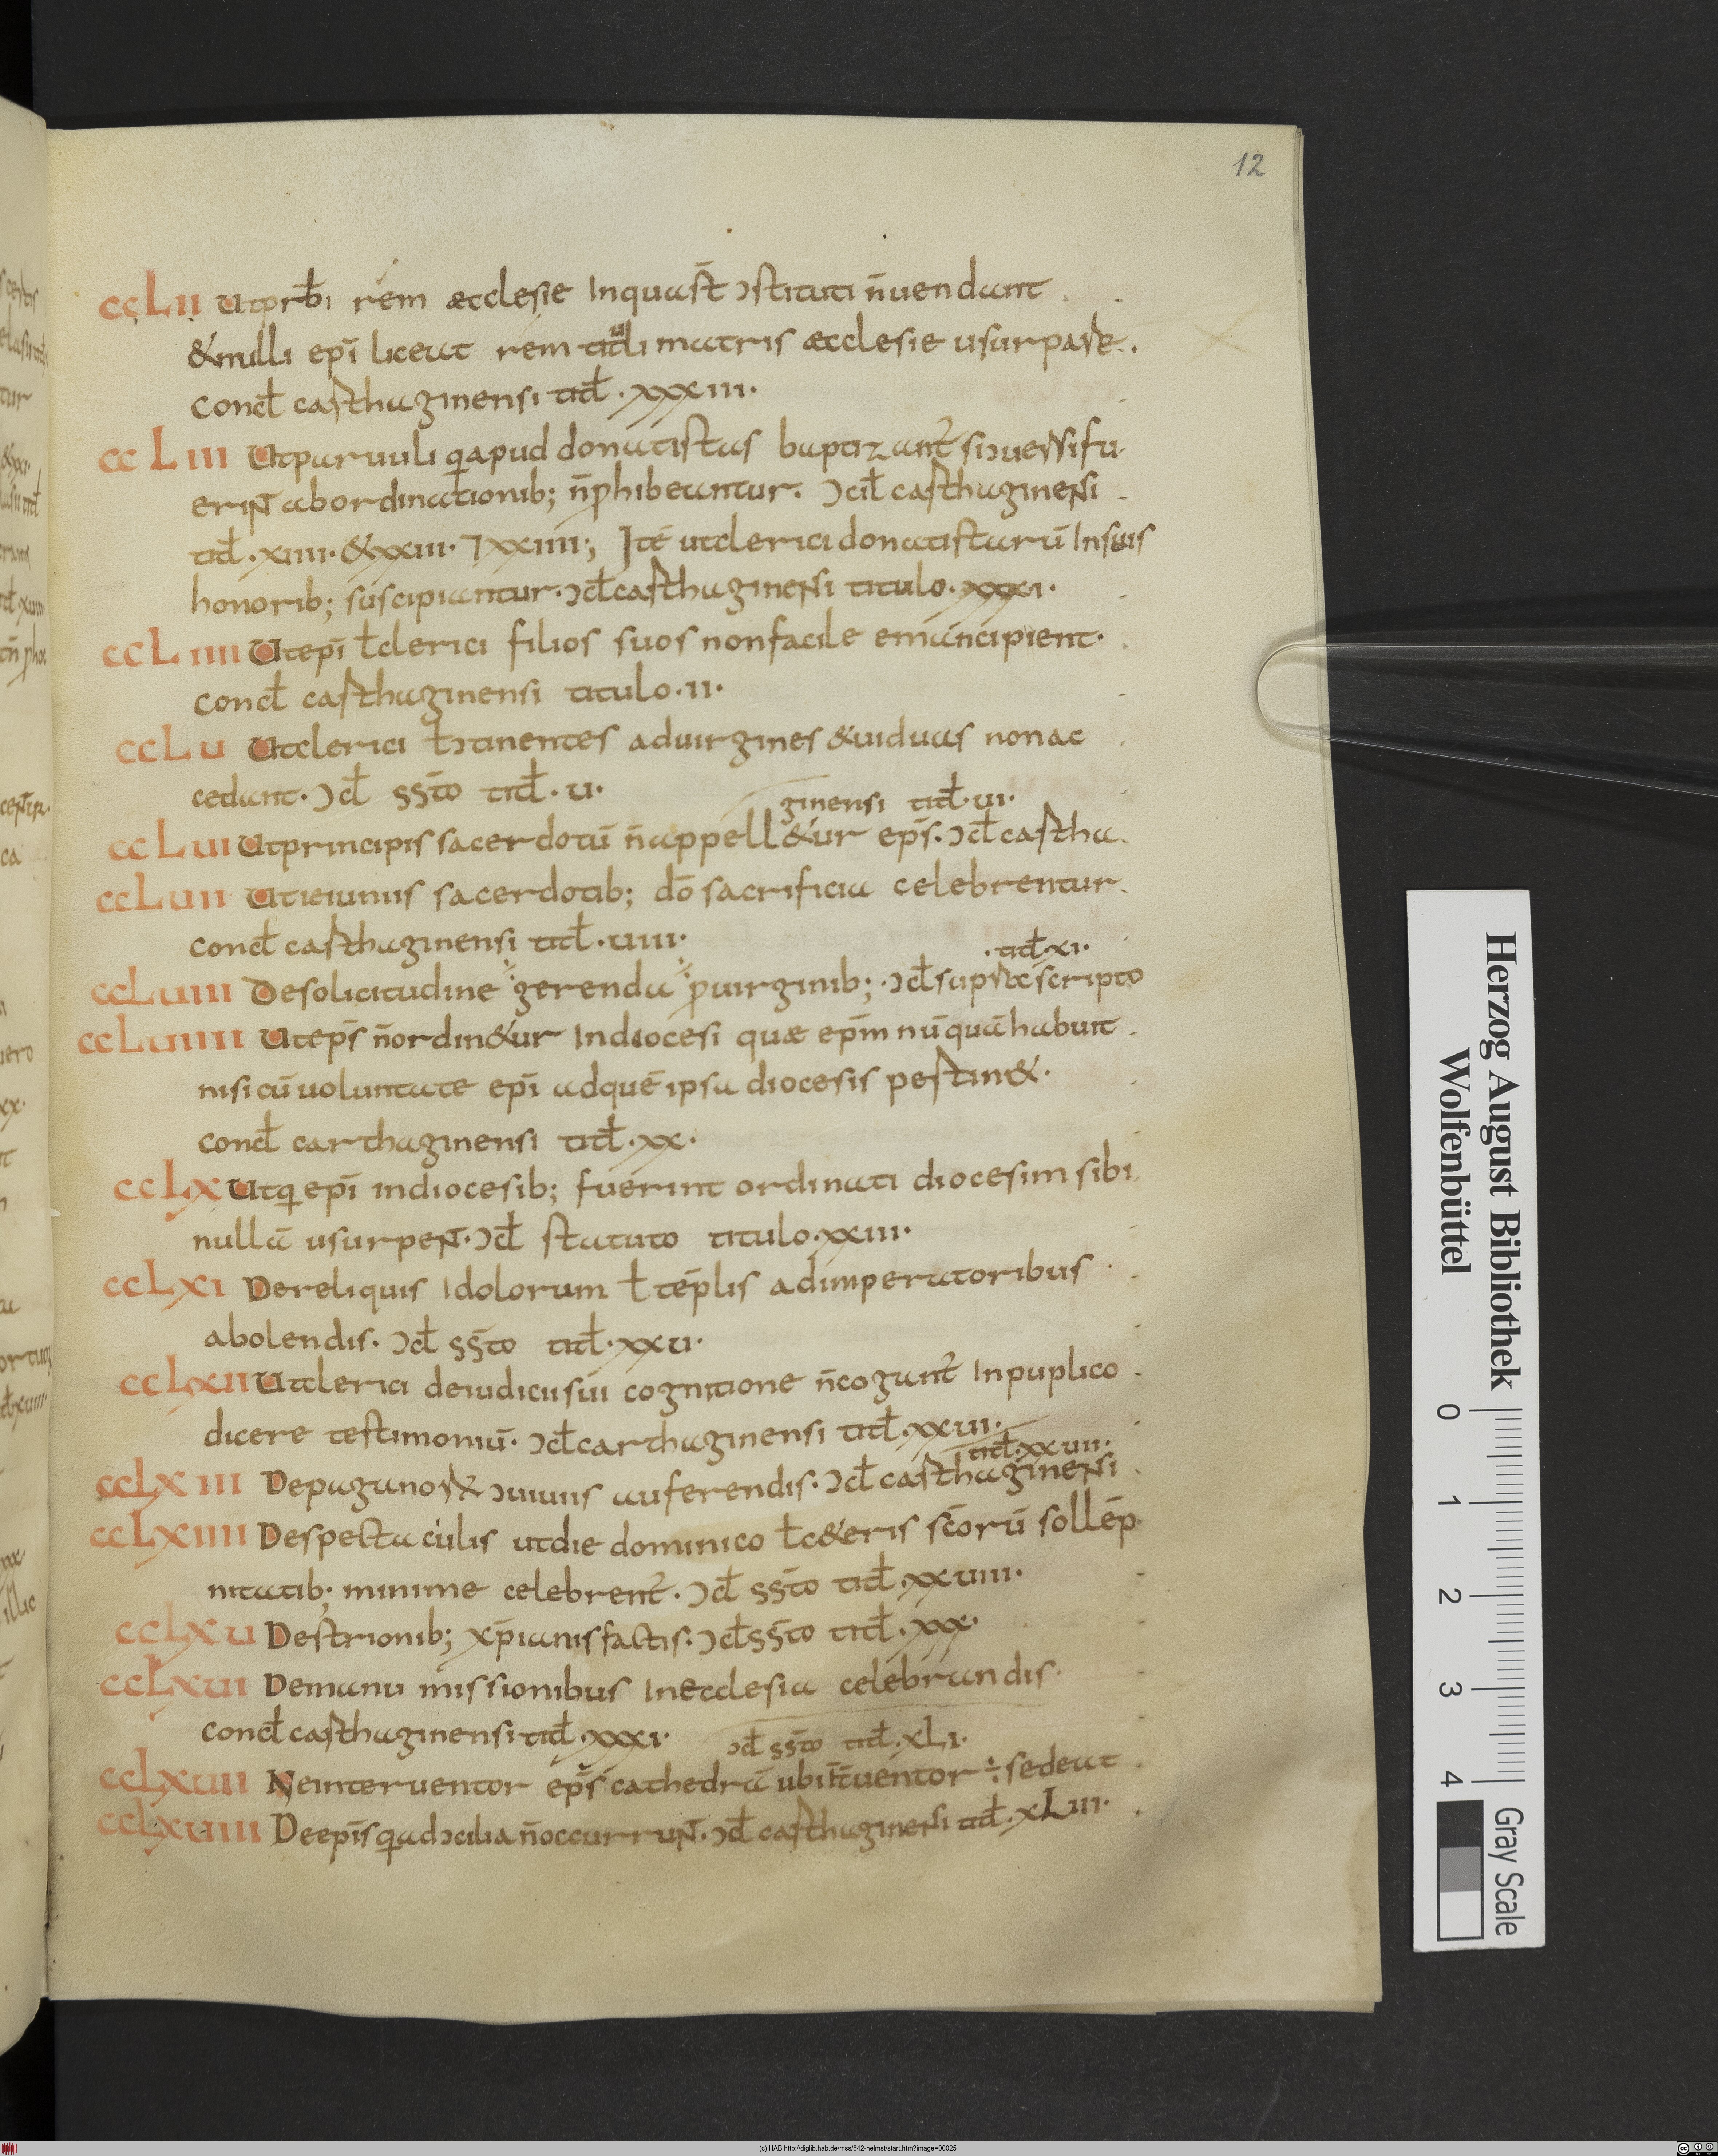 12
ccLii Utprƀi rem æcclesie Inquas̄t ɔstituti n̄uendant
&nulli epī liceat rem tituli matris æcclesie usurpare.
Concƚ carthaginensi titƚ. xxxiii.
ccLiii Utparuuli q̨apud donatistas baptizant̄ siɔuersifu
erint abordinationib; n̄ꝓhibeantur. ɔciƚ carthaginensi
titƚ. xiiii. &xxiii. ⁊xxiiii; Itē utclerici donatistarū Insuis
honorib; suscipiantur. ɔcƚcarthaginensi titulo. xxxi.
ccLiiii Utepī ƚclerici filios suos nonfacile emancipient.
Concƚ carthaginensi titulo. ii.
ccLu Utclerici ƚɔtinentes aduirgines &uiduas nonac
cedant. ɔcƚ ss̄to titƚ. u.
ginensi titƚ. ui.
ccLui Utprincipis sacerdotū n̄appell&ur ep̄s. ɔcƚcartha
ccLuii Utieiunis sacerdotib; dō sacrificia celebrentur.
Concƚ carthaginensi titƚ. uiiii.
. titƚ. xi.
ccLuiii Desolicitudine gerenda ꝓuirginib; . ɔcƚsuprascripto
ccLuiiii Utep̄s n̄ordin&ur Indiocesi quæ ep̄m nūquā habuit
nisi cū uoluntate epī adquē ipsa diocesis ꝑtin&.
Concƚ carthaginensi titƚ. xx.
ccLx Utq̨epī indiocesib; fuerint ordinati diocesim sibi
nullā usurpent. ɔcƚ statuto titulo. xxiii.
ccLxi Dereliquis Idolorum ƚ tēplis adimperatoribus
abolendis. ɔcƚ ss̄to titƚ. xxu.
ccLxii Utclerici deiudicii sui cognitione n̄cogant̄ Inpuplico
dicere testimoniū. ɔcƚcarthaginensi titƚ. xxui.
titƚ. xxuii.
ccLxiii Depaganorū ɔuiuiis auferendis. ɔcƚ carthaginensi
ccLxiiii Despectaculis utdie dominico ƚc&eris sc̄orū sollēp
nitatib; minime celebrent̄. ɔcƚ ss̄to titƚ. xxuiii.
ccLxu Destrionib; xp̄ianis factis. ɔcƚss̄to titƚ. xxx.
ccLxui Demanu missionibus Inecclesia celebrandis.
Concƚ carthaginensi titƚ. xxxi.
ɔcƚ ss̄to titƚ. xLi.
ccLxuii Neinteruentor ep̄s cathedrā ubi int̄uentor ÷ sedeat
ccLxuiii Deepīs q̨adɔcilia n̄occurrunt. ɔcƚ carthaginensi titƚ. xLiii.
Herzog August Bibliothek
Wolfenbüttel
0 1 2 3 4
Gray Scale
(c) HAB http://diglib.hab.de/mss/842-helmst/start.htm?image=00025